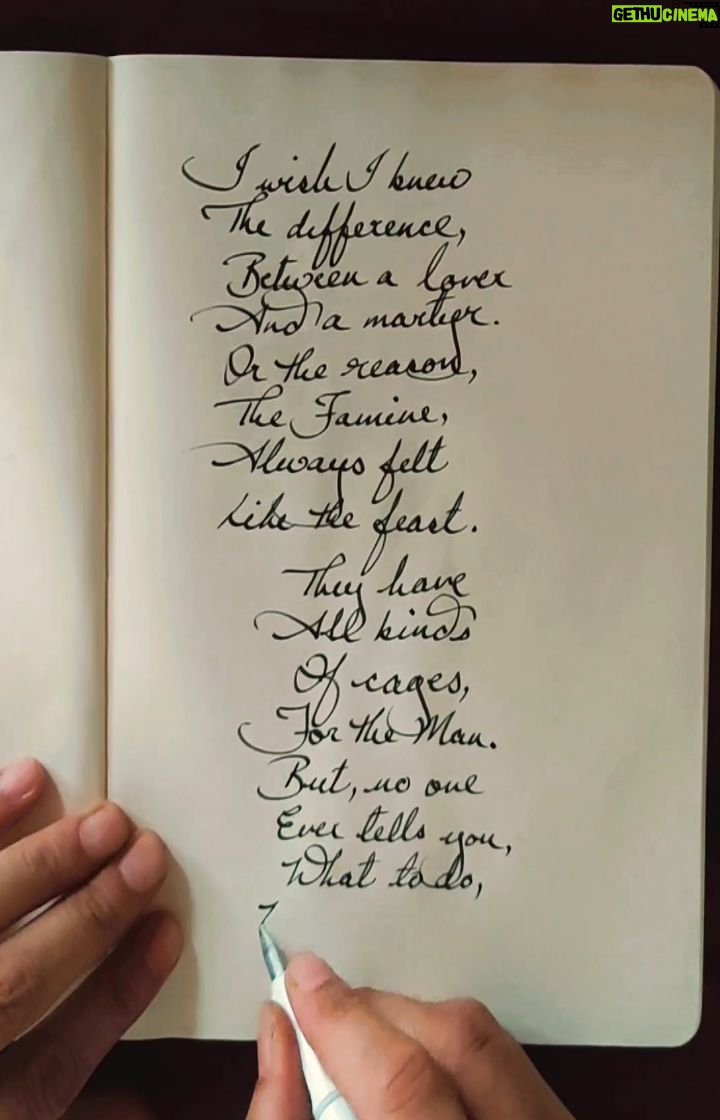 GETHUCINEMA
I wish I knew
The difference,
Between a lover
And a martyr.
Or the reason,
The Famine,
Always felt
Like the feast.
They have
All kinds
Of cages,
For the Man.
But, no one
Ever tells you,
What to do,